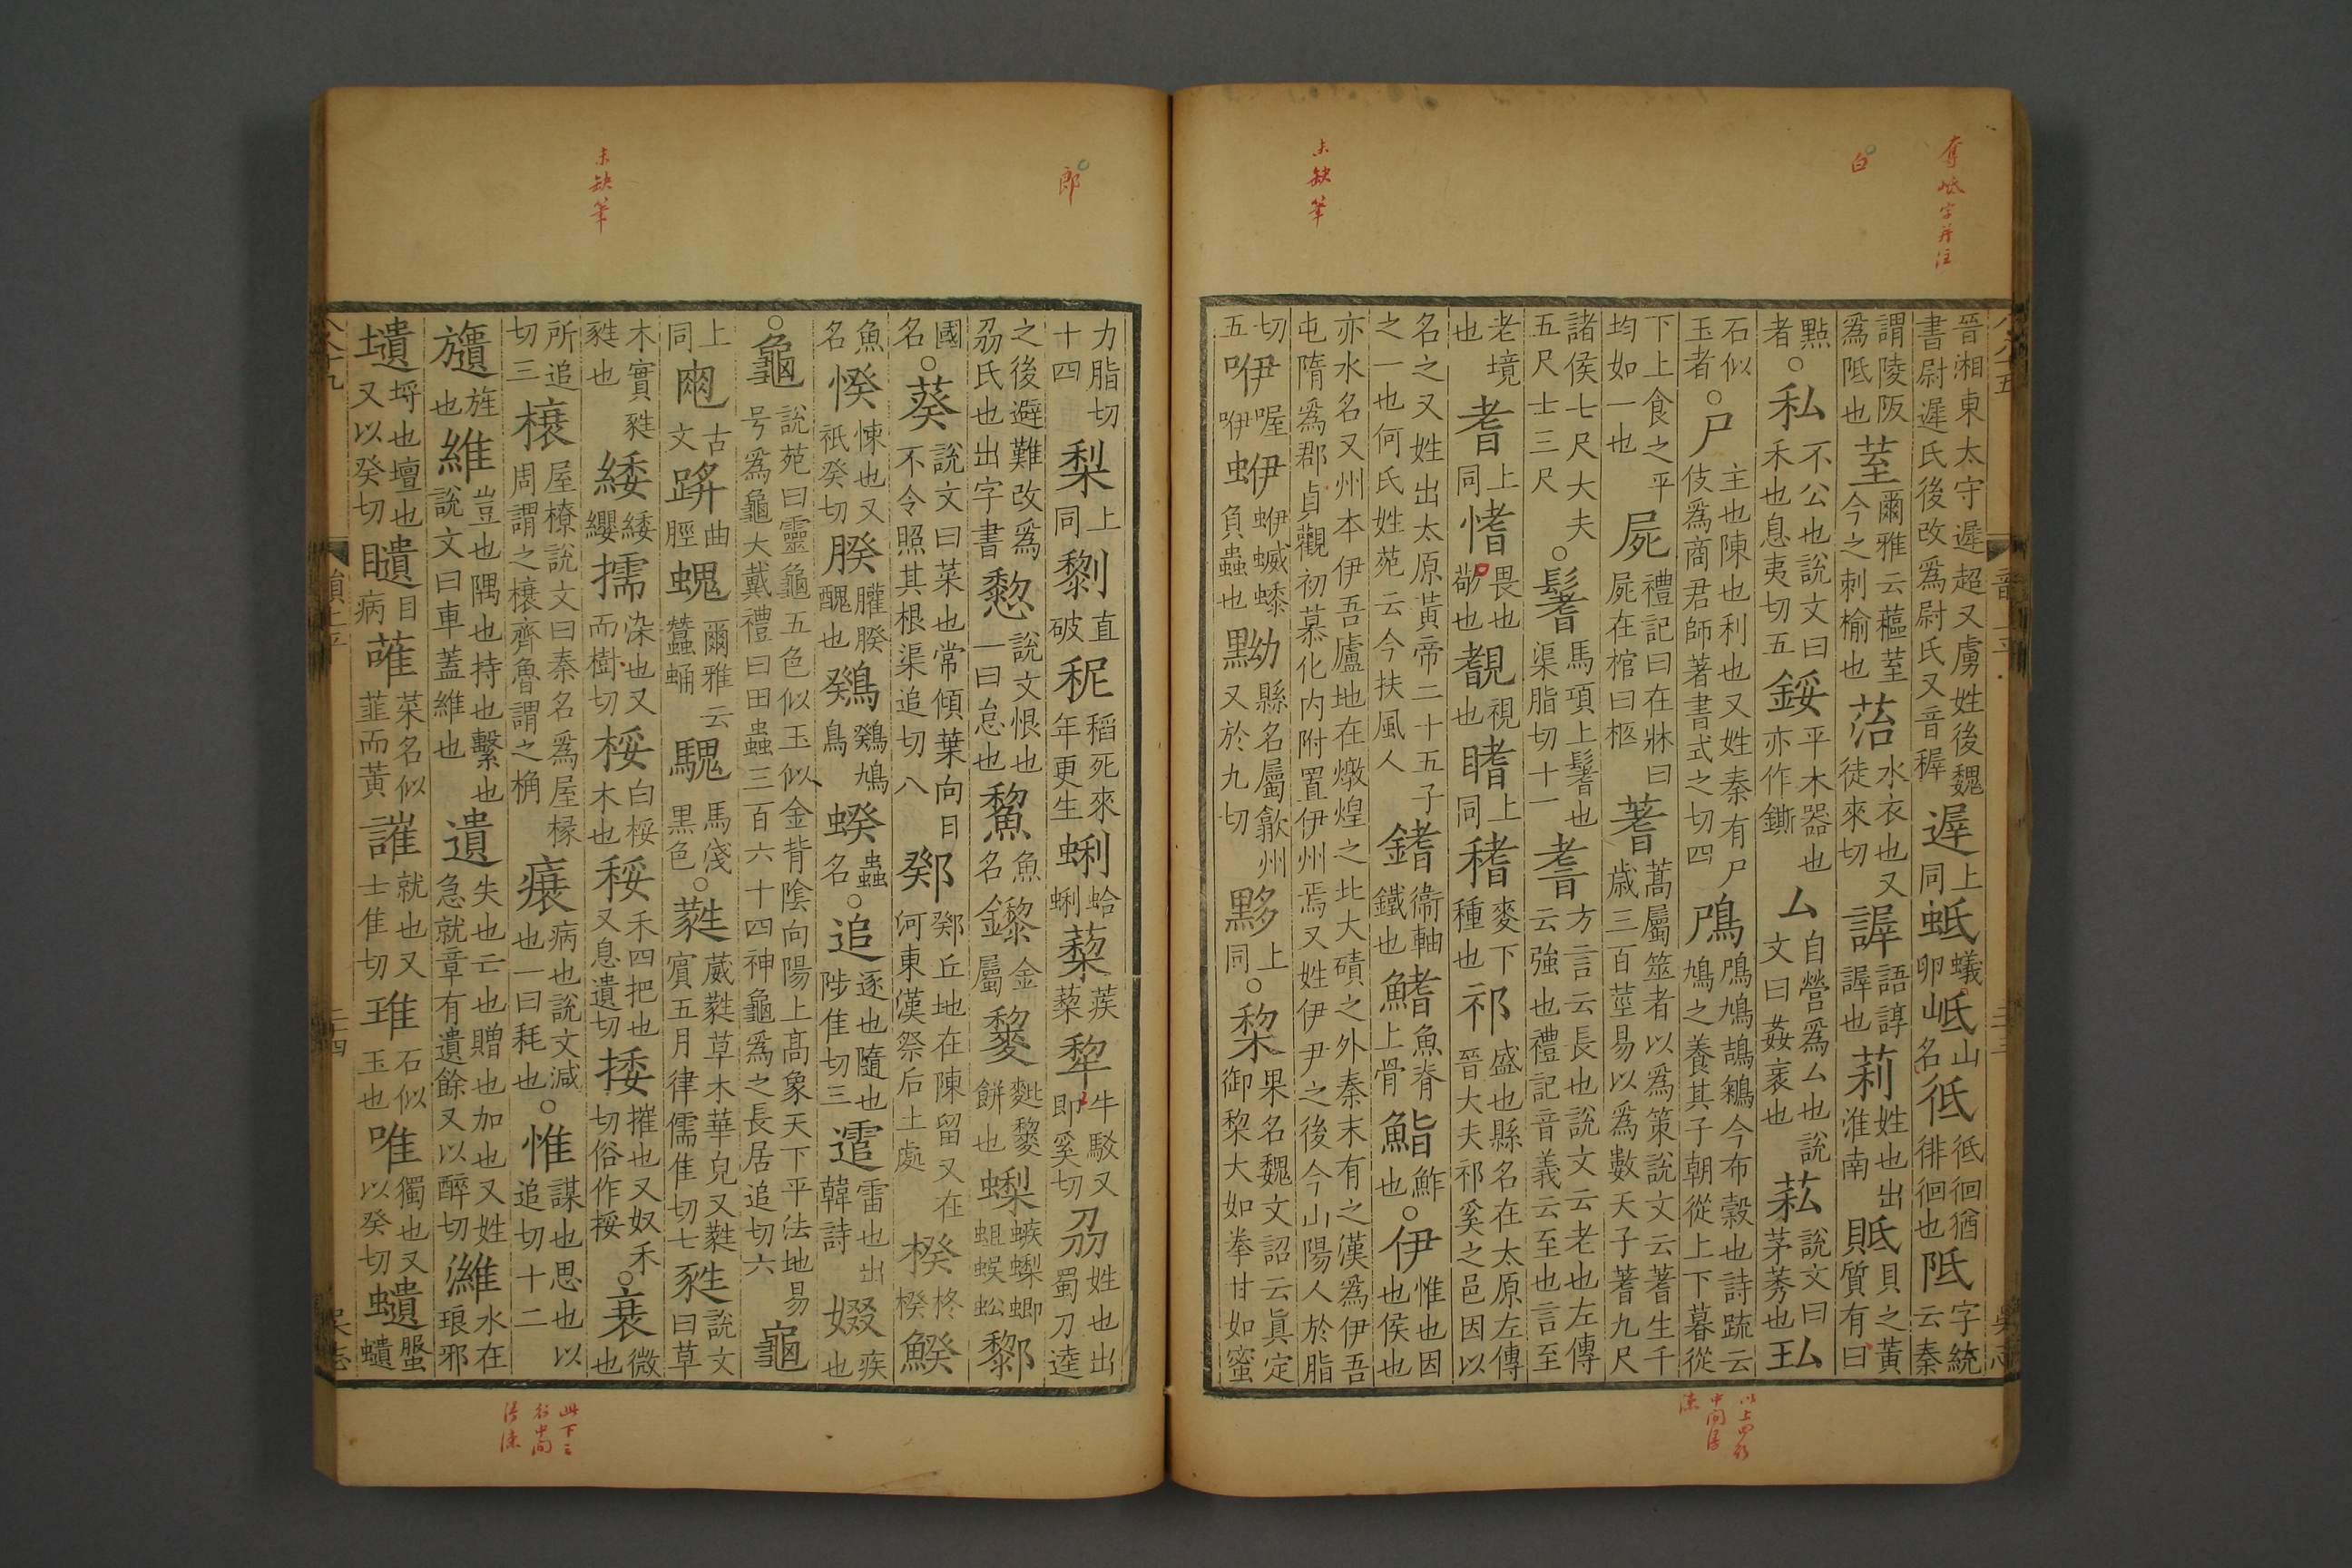 奪岻字并注
白
未缺筆
晉湘東太守遟超又虜姓後魏書尉遟氏後改爲尉氏又音稺遟上同蚳蟻卵岻山名彽彽徊猶徘徊也阺字統云秦
謂陵阪爲阺也荎爾雅云蓲荎今之刺榆也菭水衣也又徒來切謘語諄謘也莉姓也出淮南貾貝之黃質有白
點者○私不公也說文曰禾也息夷切五鋖平木器也亦作鐁厶自營爲厶也說文曰姦衺也䒨說文曰茅莠也玜
石似玉者○尸主也陳也利也又姓秦有尸佼爲商君師著書式之切四鳲鳲鳩鴶鵴今布穀也詩䟽云鳲鳩之養其子朝從上下暮從
下上食之平均如一也屍禮記曰在牀曰屍在棺曰柩蓍蒿屬筮者以爲策說文云蓍生千歲三百莖易以爲數天子蓍九尺
諸侯七尺大夫五尺士三尺○鬐馬項上鬐也渠脂切十一耆方言云長也說文云老也左傳云強也禮記音義云至也言至
老境也耆上同愭畏也敬也䚍視也瞎上同稽麥下種也祁盛也縣名在太原左傳晉大夫祁奚之邑因以
名之又姓出太原黃帝二十五子之一也何氏姓苑云今扶風人鍺衞軸鐵也鰭魚脊上骨鮨鮓也○伊惟也因也侯也
亦水名又州本伊吾盧地在燉煌之北大磧之外秦末有之漢爲伊吾屯隋爲郡貞觀初慕化內附置伊州焉又姓伊尹之後今山陽人於脂
切五咿喔咿蛜蛜蝛蟋負蟲也黝縣名屬歙州又於九切黟上同○棃果名魏文詔云眞定御棃大如拳甘如蜜
以上四行中間損
郎
未缺筆
力脂切十四梨上同剺直破秜稻死來年更生蜊蛤蜊蔾蒺蔾犂牛駁又郎奚切刕姓也出蜀刀逵
之後避難改爲刕氏也出字書䴻說文恨也一曰怠也鯬魚名鑗金屬䵩䴾䵩餅也蟍蟍螏蝍蛆蜈蚣黎
國名○葵說文曰菜也常傾葉向日不令照其根渠追切八鄈鄈丘地在陳留又在河東漢祭后土處楑柊楑鰇
魚名悞悚也又祇癸切䐋䑏䐋醜也鶏鶏鳩鳥蟉蟲名○追逐也隨也陟隹切三䨓雷也出韓詩娺疾也
○龜說苑曰靈龜五色似玉似金背陰向陽上高象天下平法地易号爲龜大戴禮曰田蟲三百六十四神龜爲之長居追切六龜
上同古文䠏曲脛螝爾雅云蠶蛹騩馬淺黑色○蕤葳蕤草木華皃又蕤賓五月律儒隹切七甤說文曰草
木實甤甤也緌緌纓擩染也又而樹切桵白桵木也䅑禾四把也又息遺切捼摧也又奴禾切俗作挼○衰微也
所追切三榱屋橑說文曰秦名爲屋椽周謂之榱齊魯謂之桷㾽病也說文減也一曰耗也○惟謀也思也以追切十二
䍁旌也維豈也隅也持也繫也說文曰車蓋維也遺失也亡也贈也加也又姓急就章有遺餘又以醉切濰水在琅邪
壝埒也壇也又以癸切瞶目病䔺菜名似韮而黃䜅就也又士隹切琟石似玉也唯獨也又以癸切蠵螌蠵
此下三行中間損